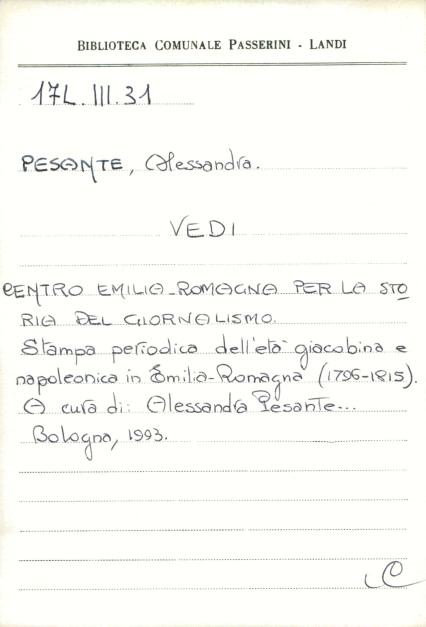 BIBLIOTECA COMUNALE PASSERINI - LANDI
17L.III.31
PESANTE, Alessandra.
VEDI
CENTRO EMILIA-ROMAGNA PER LA STO
RIA DEL GIORNALISMO.
Stampa periodica dell'età giacobina e
napoleonica in Emilia-Romagna (1796-1815).
A cura di: Alessandra Pesante...
Bologna, 1993.